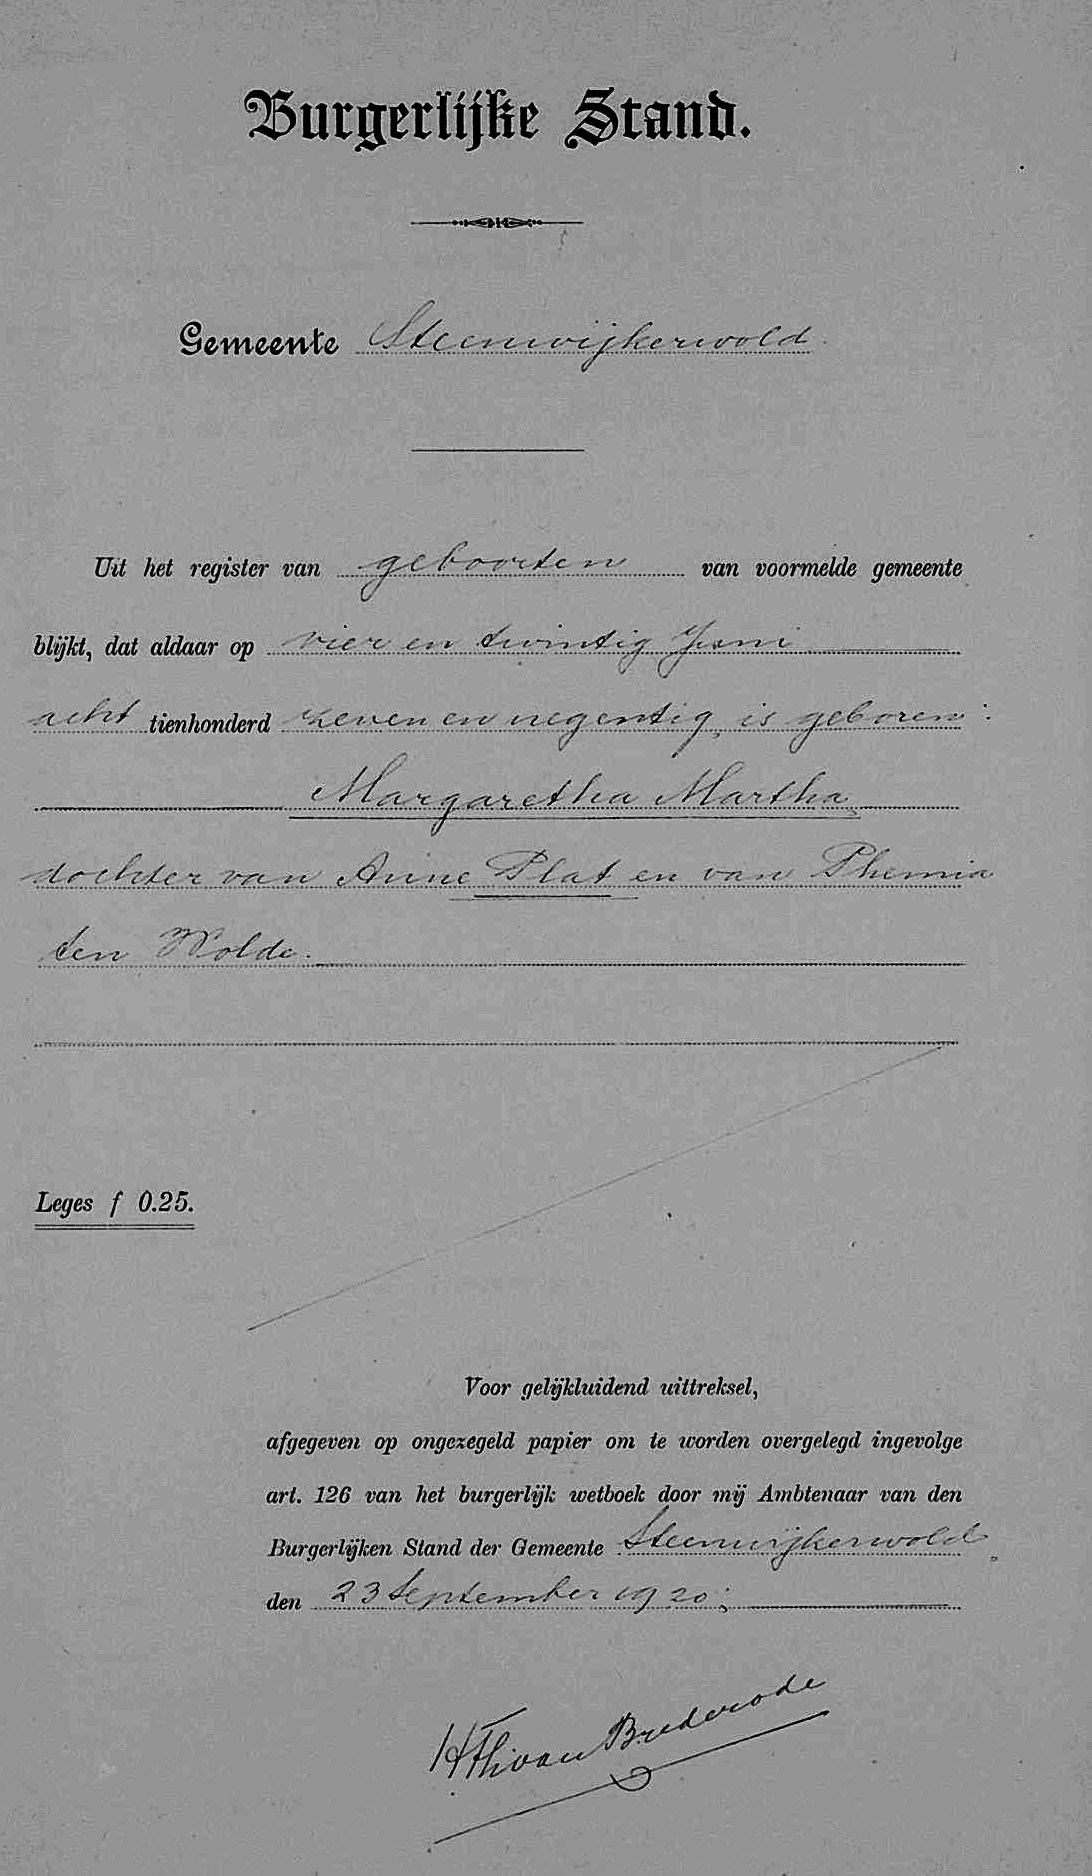 Burgerlijke Stand.
Gemeente Steenwijkerwold.
Uit het register van geboorten van voormelde gemeente
blijkt, dat aldaar op vier en twintig Juni
acht tienhonderd zeven en negentig, is geboren:
Margaretha Martha,
dochter van Anne Plat en van Phemia
ten Wolde.
Leges f 0.25.
Voor gelijkluidend uittreksel,
afgegeven op ongezegeld papier om te worden overgelegd ingevolge
art. 126 van het burgerlijk wetboek door mij Ambtenaar van den
Burgerlijken Stand der Gemeente Steenwijkerwold.
den 23 September 1920.
van Brederode